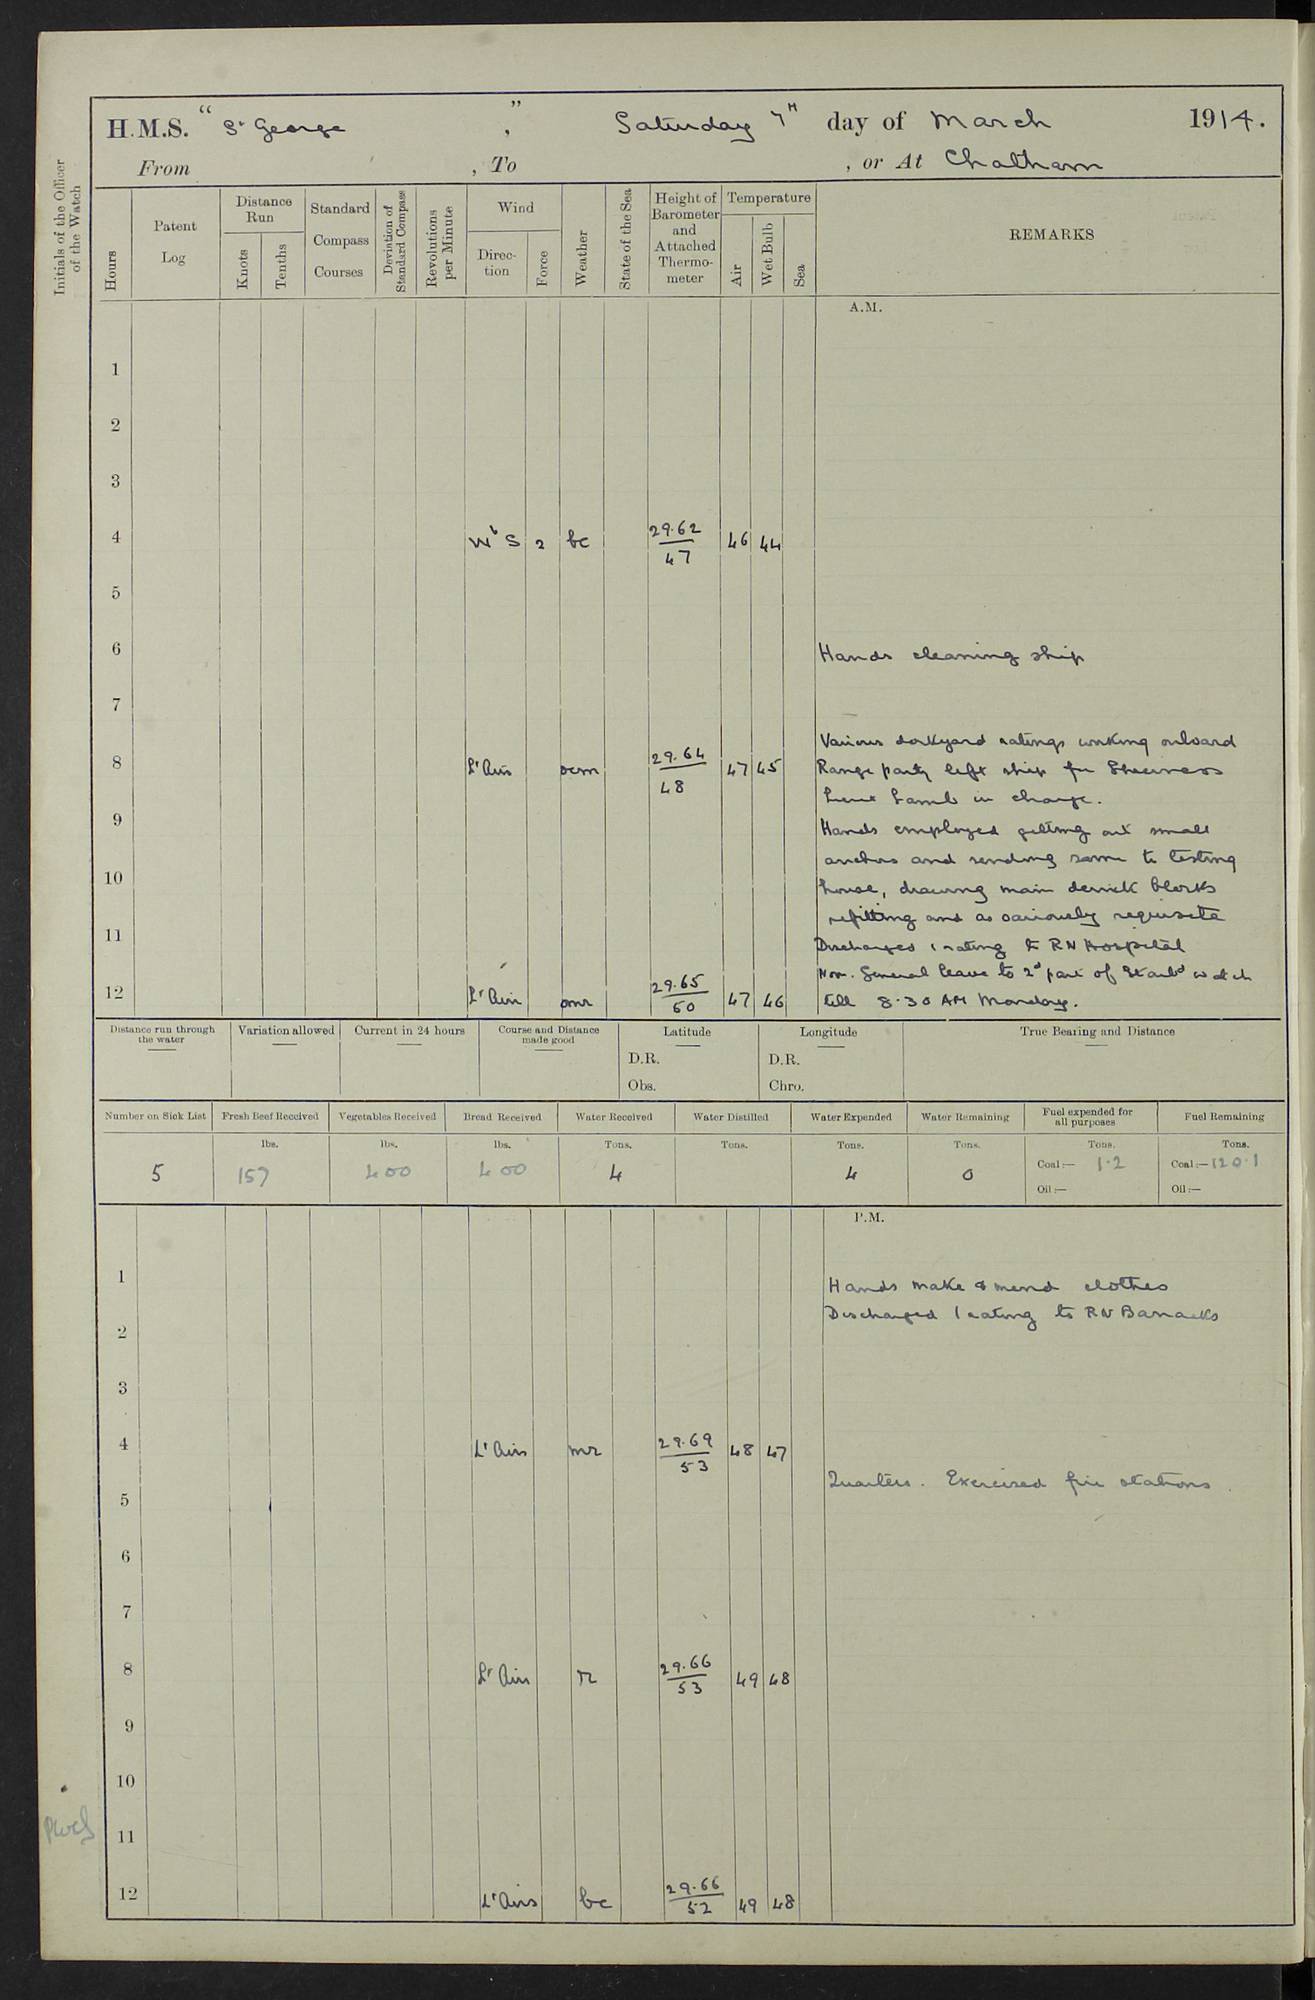 H.M.S. "Sᵗ George", Saturday 7ᵀᴴ day of March 1914.
From , To , or At Chatham
Initials of the Officer of the Watch
Hours
Patent Log
Distance Run
Knots
Tenths
Standard Compass Courses
Deviation of Standard Compass
Revolutions per Minute
Wind
Direction
Force
Weather
State of the Sea
Height of Barometer and Attached Thermometer
Temperature
Air
Wet Bulb
Sea
REMARKS
A.M.
1
2
3
4 WᵇS 2 bc 29.62/47 46 44
5
6 Hands cleaning ship
7
Various dockyard ratings working onboard
8 Lᵗ Airs ocm 29.64/48 47 45 Range party left ship for Sheerness
Lieut Lamb in charge.
9 Hands employed getting out small
anchors and sending same to testing
10 house, drawing main derrick blocks
refitting and as variously requisite
11 Discharged 1 rating to RN Hospital
Noon. General leave to 2ᵈ part of Starbᵈ watch
12 Lᵗ Airs omr 29.65/50 47 46 till 8.30 AM Monday.
Distance run through the water
Variation allowed
Current in 24 hours
Course and Distance made good
Latitude
D.R.
Obs.
Longitude
D.R.
Chro.
True Bearing and Distance
Number on Sick List Fresh Beef Received Vegetables Received Bread Received Water Received Water Distilled Water Expended Water Remaining Fuel expended for all purposes Fuel Remaining
lbs. lbs. lbs. Tons. Tons. Tons. Tons. Tons. Tons.
5 157 400 400 4 4 0 Coal:— 1.2 Coal:— 120.1
Oil:— Oil:—
P.M.
1 Hands make & mend clothes
Discharged 1 rating to RN Barracks
2
3
4 Lᵗ Airs mr 29.69/53 48 47
Quarters. Exercised fire stations
5
6
7
8 Lᵗ Airs r 29.66/53 49 48
9
10
11
12 Lᵗ Airs bc 29.66/52 49 48